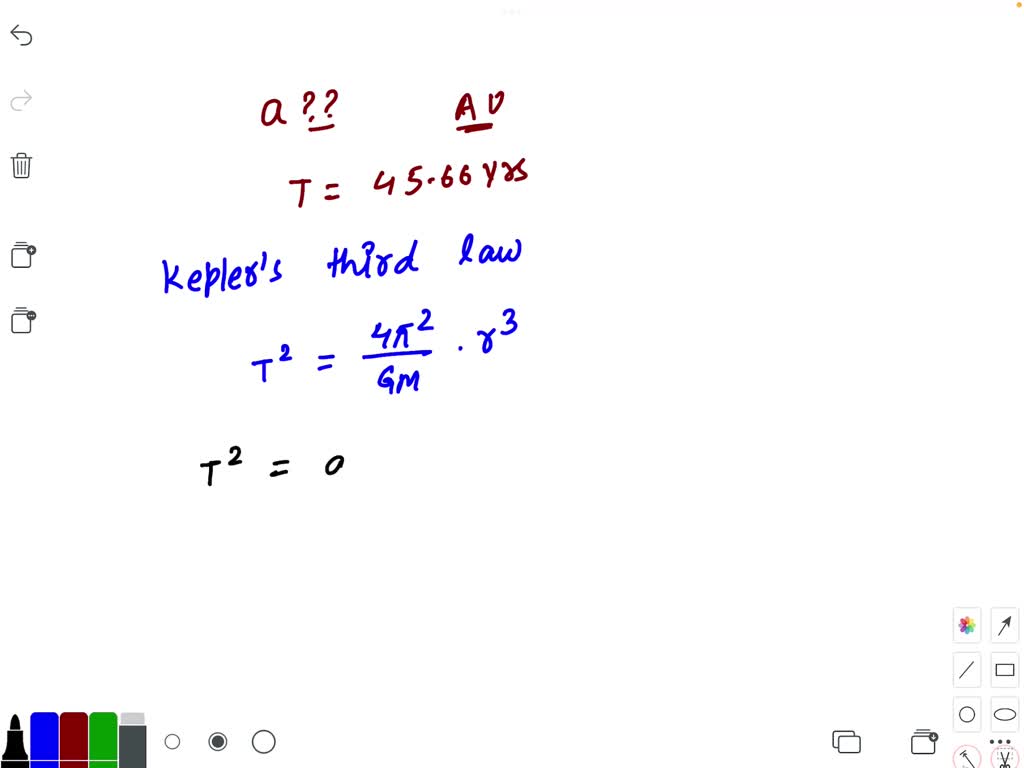 a ?? AU
T = 45.66 yrs
Kepler's third law
T² = 4π²/GM · r³
T² = a